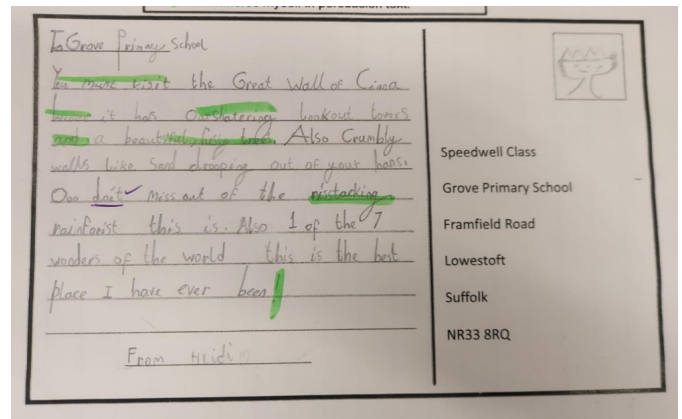 myself in persuasion text.
To Grove Primary School
You must visit the Great Wall of Cinna
it has Overshatering lookout towers
and a beautiful trees. Also Crumbly
walls like Sand dropping out of your hans.
Ooo don't miss out of the risstacking
rainforist this is. Also 1 of the 7
wonders of the world this is the best
place I have ever been!
From Heidi
Speedwell Class
Grove Primary School
Framfield Road
Lowestoft
Suffolk
NR33 8RQ